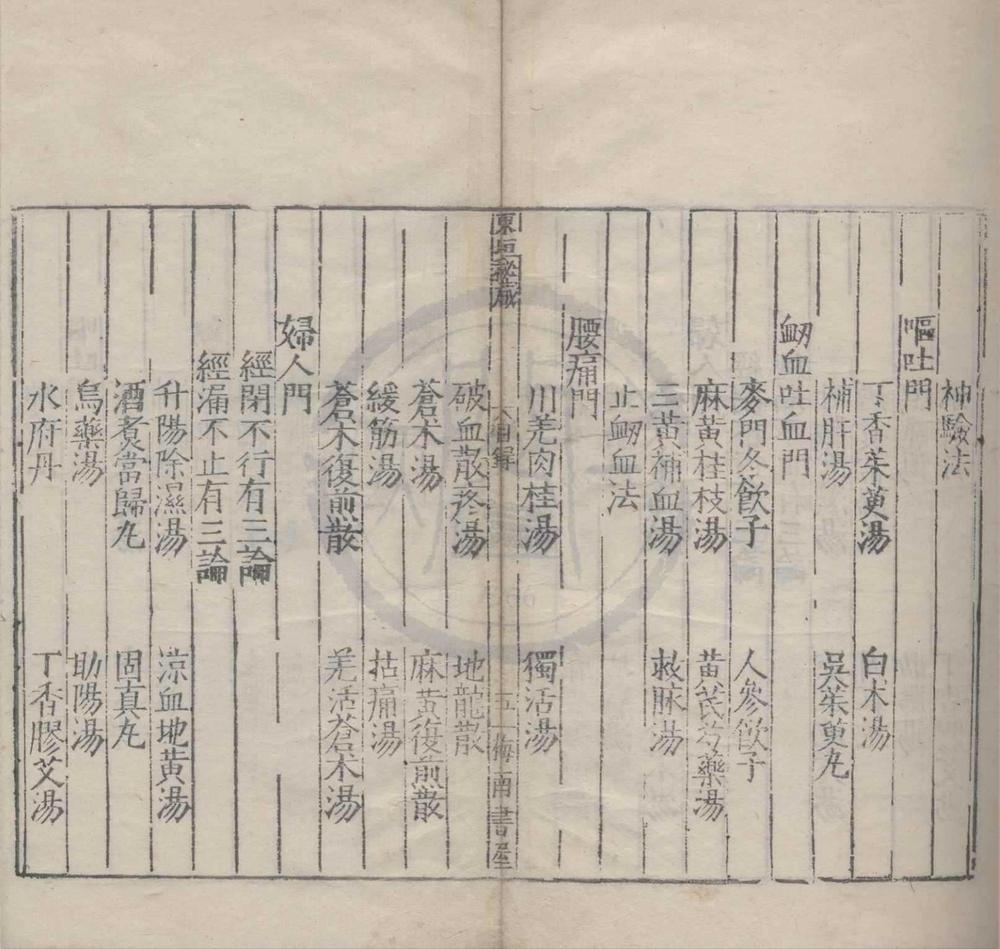 神驗法
嘔吐門
丁香茱萸湯　白术湯
補肝湯　吳茱萸丸
衂血吐血門
麥門冬飲子　人參飲子
麻黃桂枝湯　黃芪芍藥湯
三黃補血湯　救脉湯
止衂血法
腰痛門
川羌肉桂湯　獨活湯
東垣秘藏　目錄　五　梅南書屋
破血散疼湯　地龍散
蒼术湯　麻黃復煎散
緩筋湯　拈痛湯
蒼术復煎散　羌活蒼术湯
婦人門
經閉不行有三論
經漏不止有三論
升陽除濕湯　涼血地黃湯
酒煮當歸丸　固真丸
烏藥湯　助陽湯
水府丹　丁香膠艾湯